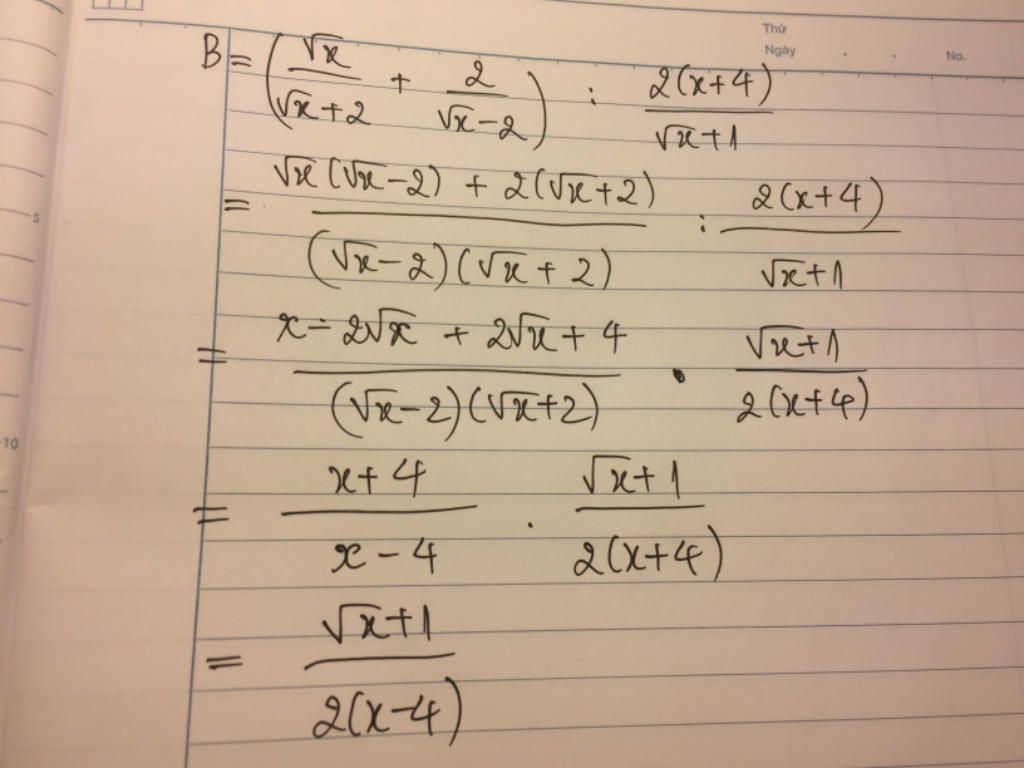 Thứ
Ngày . . No.
B = (√x/(√x+2) + 2/(√x-2)) : 2(x+4)/(√x+1)
= (√x(√x-2) + 2(√x+2))/((√x-2)(√x+2)) : 2(x+4)/(√x+1)
5
= (x-2√x + 2√x+4)/((√x-2)(√x+2)) . (√x+1)/(2(x+4))
10
= (x+4)/(x-4) . (√x+1)/(2(x+4))
= (√x+1)/(2(x-4))